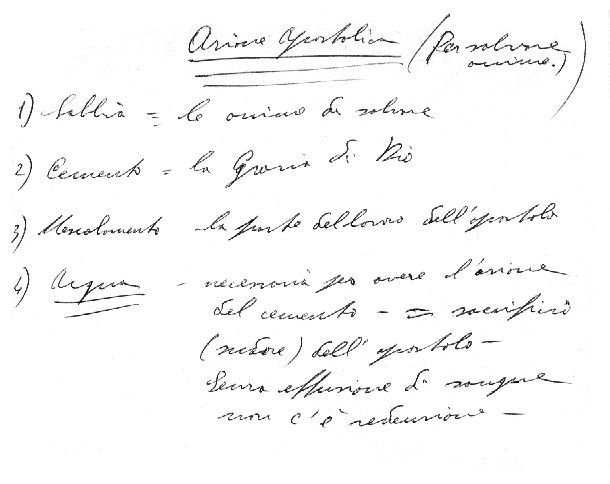 Azione apostolica (Per salvare
anime.)
1) Sabbia = le anime da salvare
2) Cemento = la Grazia di Dio
3) Mescolamento - la parte del lavoro dell'apostolo
4) Acqua - necessaria per avere l'azione
del cemento - = sacrificio
(sudore) dell'apostolo -
Senza effusione di sangue
non c'è redenzione -